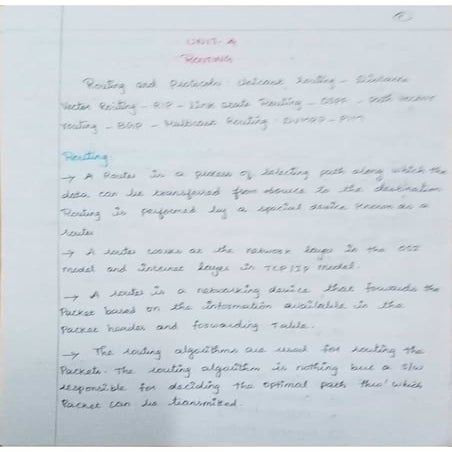 UNIT-4
ROUTING
Routing and Protocols: Unicast routing - Distance
Vector Routing - RIP - Link State Routing - OSPF - Path Vector
routing - BGP - Multicast Routing: DVMRP - PIM
Routing:
→ A Router is a process of selecting path along which the
data can be transferred from source to the destination
Routing is performed by a special device known as a
router
→ A router works at the network layer in the OSI
model and internet layer in TCP/IP model.
→ A router is a networking device that forwards the
Packet based on the information available in the
Packet header and forwarding Table.
→ The routing algorithms are used for routing the
Packets. The routing algorithm is nothing but a S/W
responsible for deciding the optimal path thro' which
Packet can be transmited.